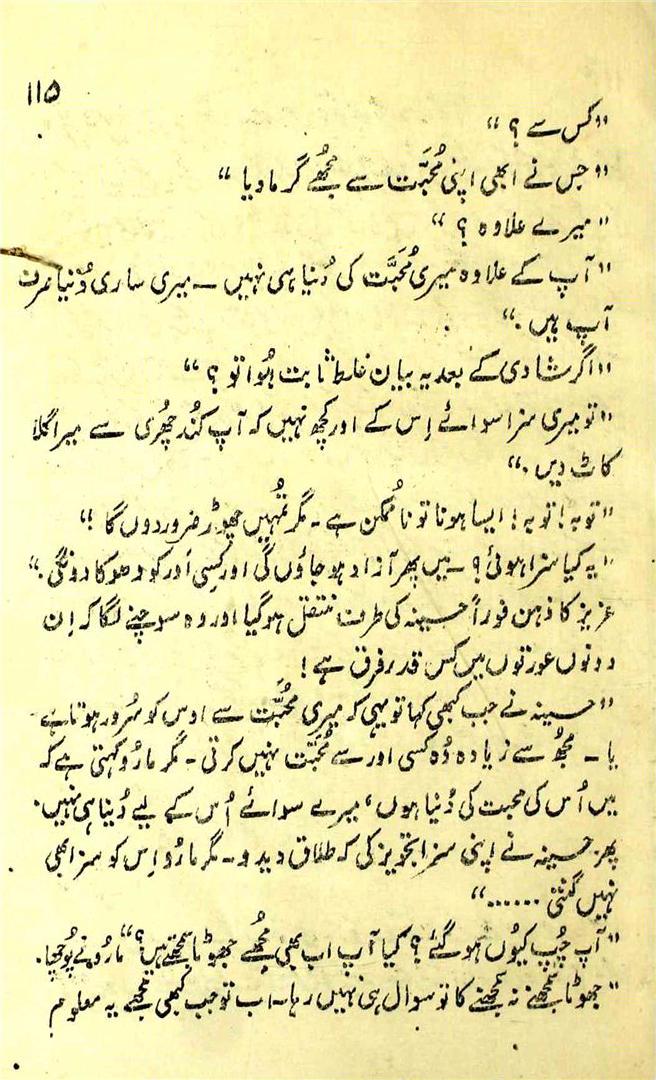 ۱۱۵
"کس سے ؟"
"جس نے ابھی اپنی مُحبَّت سے مُجھے گرما دیا"
"میرے علاوہ ؟"
"آپ کے علاوہ میری مُحَبَّت کی دُنیا ہی نہیں ــ میری ساری دُنیا صرف
آپ ہیں ۔"
"اگر شادی کے بعد یہ بیان غلط ثابت ہُوا تو ؟"
"تو میری سزا سوائے اِس کے اور کچھ نہیں کہ آپ کُند چھُری سے میرا گلا
کاٹ دیں ۔"
"توبہ ! توبہ ! ایسا ہونا تو نا مُمکن ہے ۔ مگر تُمہیں چھوڑ ضرور دوں گا !"
"یہ کیا سزا ہوئی ؟ ۔ میں پھر آزاد ہو جاؤں گی اور کسِی اَور کو دھوکا دونگی ۔"
عزیز کا ذہن فوراً حسینہ کی طرف منتقل ہو گیا اور وہ سوچنے لگا کہ اِن
دونوں عورتوں میں کس قدر فرق ہے !
"حسینہ نے جب کبھی کہا تو یہی کہ میری محُبَّت سے اوس کو سُرور ہوتا ہے
یا ۔ مجھُ سے زیادہ وُہ کسی اور سے مُحبَّت نہیں کرتی ۔ مگر مارُو کہتی ہے کہ
میں اُس کی محبت کی دُنیا ہوں ، میرے سوائے اُس کے لیے دُنیا ہی نہیں ۔
پھر حسینہ نے اپنی سزا تجویز کی کہ طلاق دیدو ۔ مگر مارُو اِس کو سزا بھی
نہیں گنتی ......"
"آپ چُپ کیوُں ہو گئے ؟ کیا آپ اب بھی مُجھے جھوٹا سمجھتے ہیں ؟" مارُو نے پوُچھا ۔
"جھوٹا سمجھنے نہ سمجھنے کا تو سوال ہی نہیں رہا ۔ اب تو جب کبھی مجھے یہ معلوم